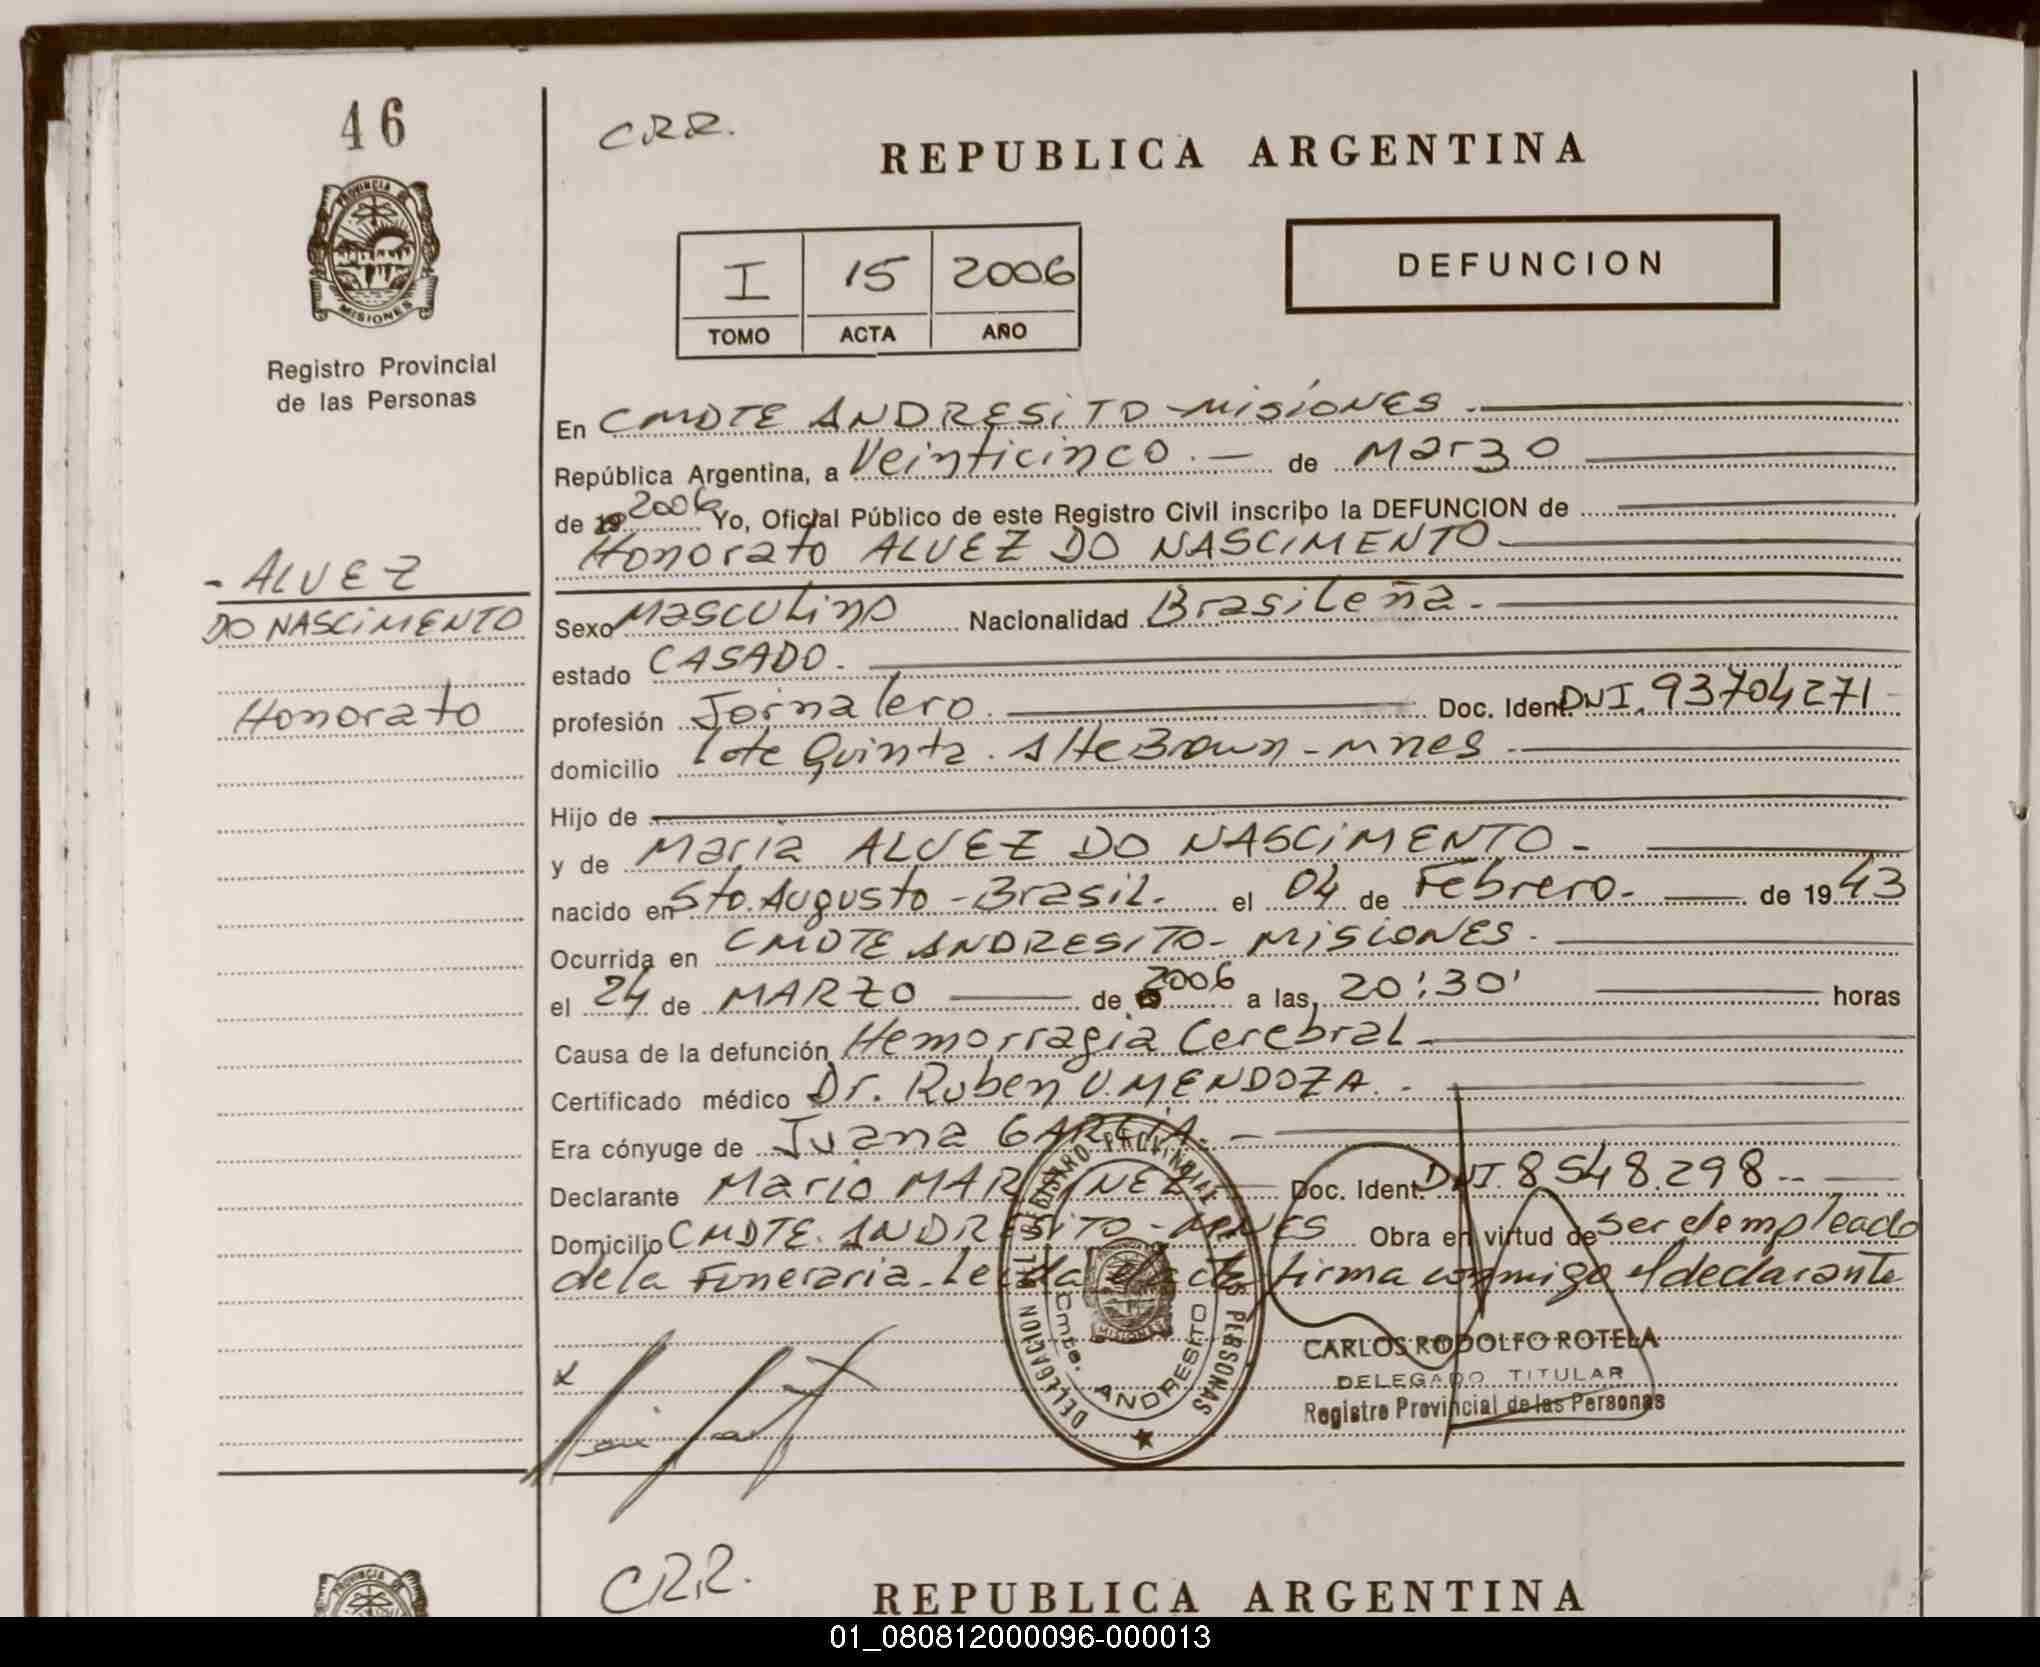 46
CRR.
REPUBLICA ARGENTINA
PROVINCIA DE
MISIONES
Registro Provincial
de las Personas
I 15 2006
TOMO ACTA AÑO
DEFUNCION
En CMDTE ANDRESITO - MISIONES.
República Argentina, a Veinticinco. de Marzo
de 19 2006 Yo, Oficial Público de este Registro Civil inscribo la DEFUNCION de
Honorato ALVEZ DO NASCIMENTO
- ALVEZ
DO NASCIMENTO
Honorato
Sexo Masculino Nacionalidad Brasileña.
estado CASADO.
profesión Jornalero. Doc. Ident. DNI. 93704271
domicilio Lote Quinta. Alte Brown - Mnes.
Hijo de
y de Maria ALVEZ DO NASCIMENTO -
nacido en Sto. Augusto - Brasil. el 04 de Febrero. de 19 43
Ocurrida en CMDTE ANDRESITO - MISIONES.
el 24 de MARZO de 2006 a las 20:30' horas
Causa de la defunción Hemorragia Cerebral.
Certificado médico Dr. Ruben V. MENDOZA.
Era cónyuge de Juana GARCIA.
Declarante Mario MARTINEZ Doc. Ident. DNI. 8548.298
Domicilio CMDTE. ANDRESITO - MNES Obra en virtud de ser el empleado
de la Funeraria. Leida el acta firma conmigo el declarante
DELEGACION DEL REGISTRO PROVINCIAL DE LAS PERSONAS
Cmte. ANDRESITO
MISIONES
CARLOS RODOLFO ROTELA
DELEGADO TITULAR
Registro Provincial de las Personas
CRR.
REPUBLICA ARGENTINA
PROVINCIA DE
01_080812000096-000013